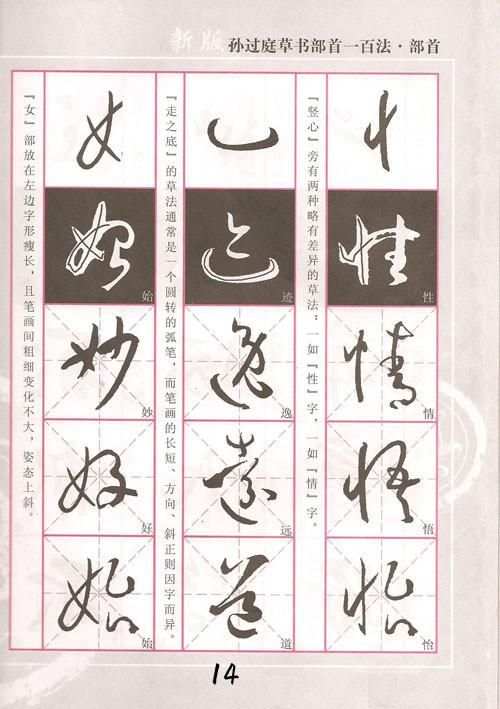 新版 孙过庭草书部首一百法·部首
忄
性
情
悟
怡
『竖心』旁有两种略有差异的草法：一如『性』字，一如『情』字。
辶
迹
逸
远
道
『走之底』的草法通常是一个圆转的弧笔，而笔画的长短、方向、斜正则因字而异。
女
始
妙
好
始
『女』部放在左边字形瘦长，且笔画间粗细变化不大，姿态上斜。
14